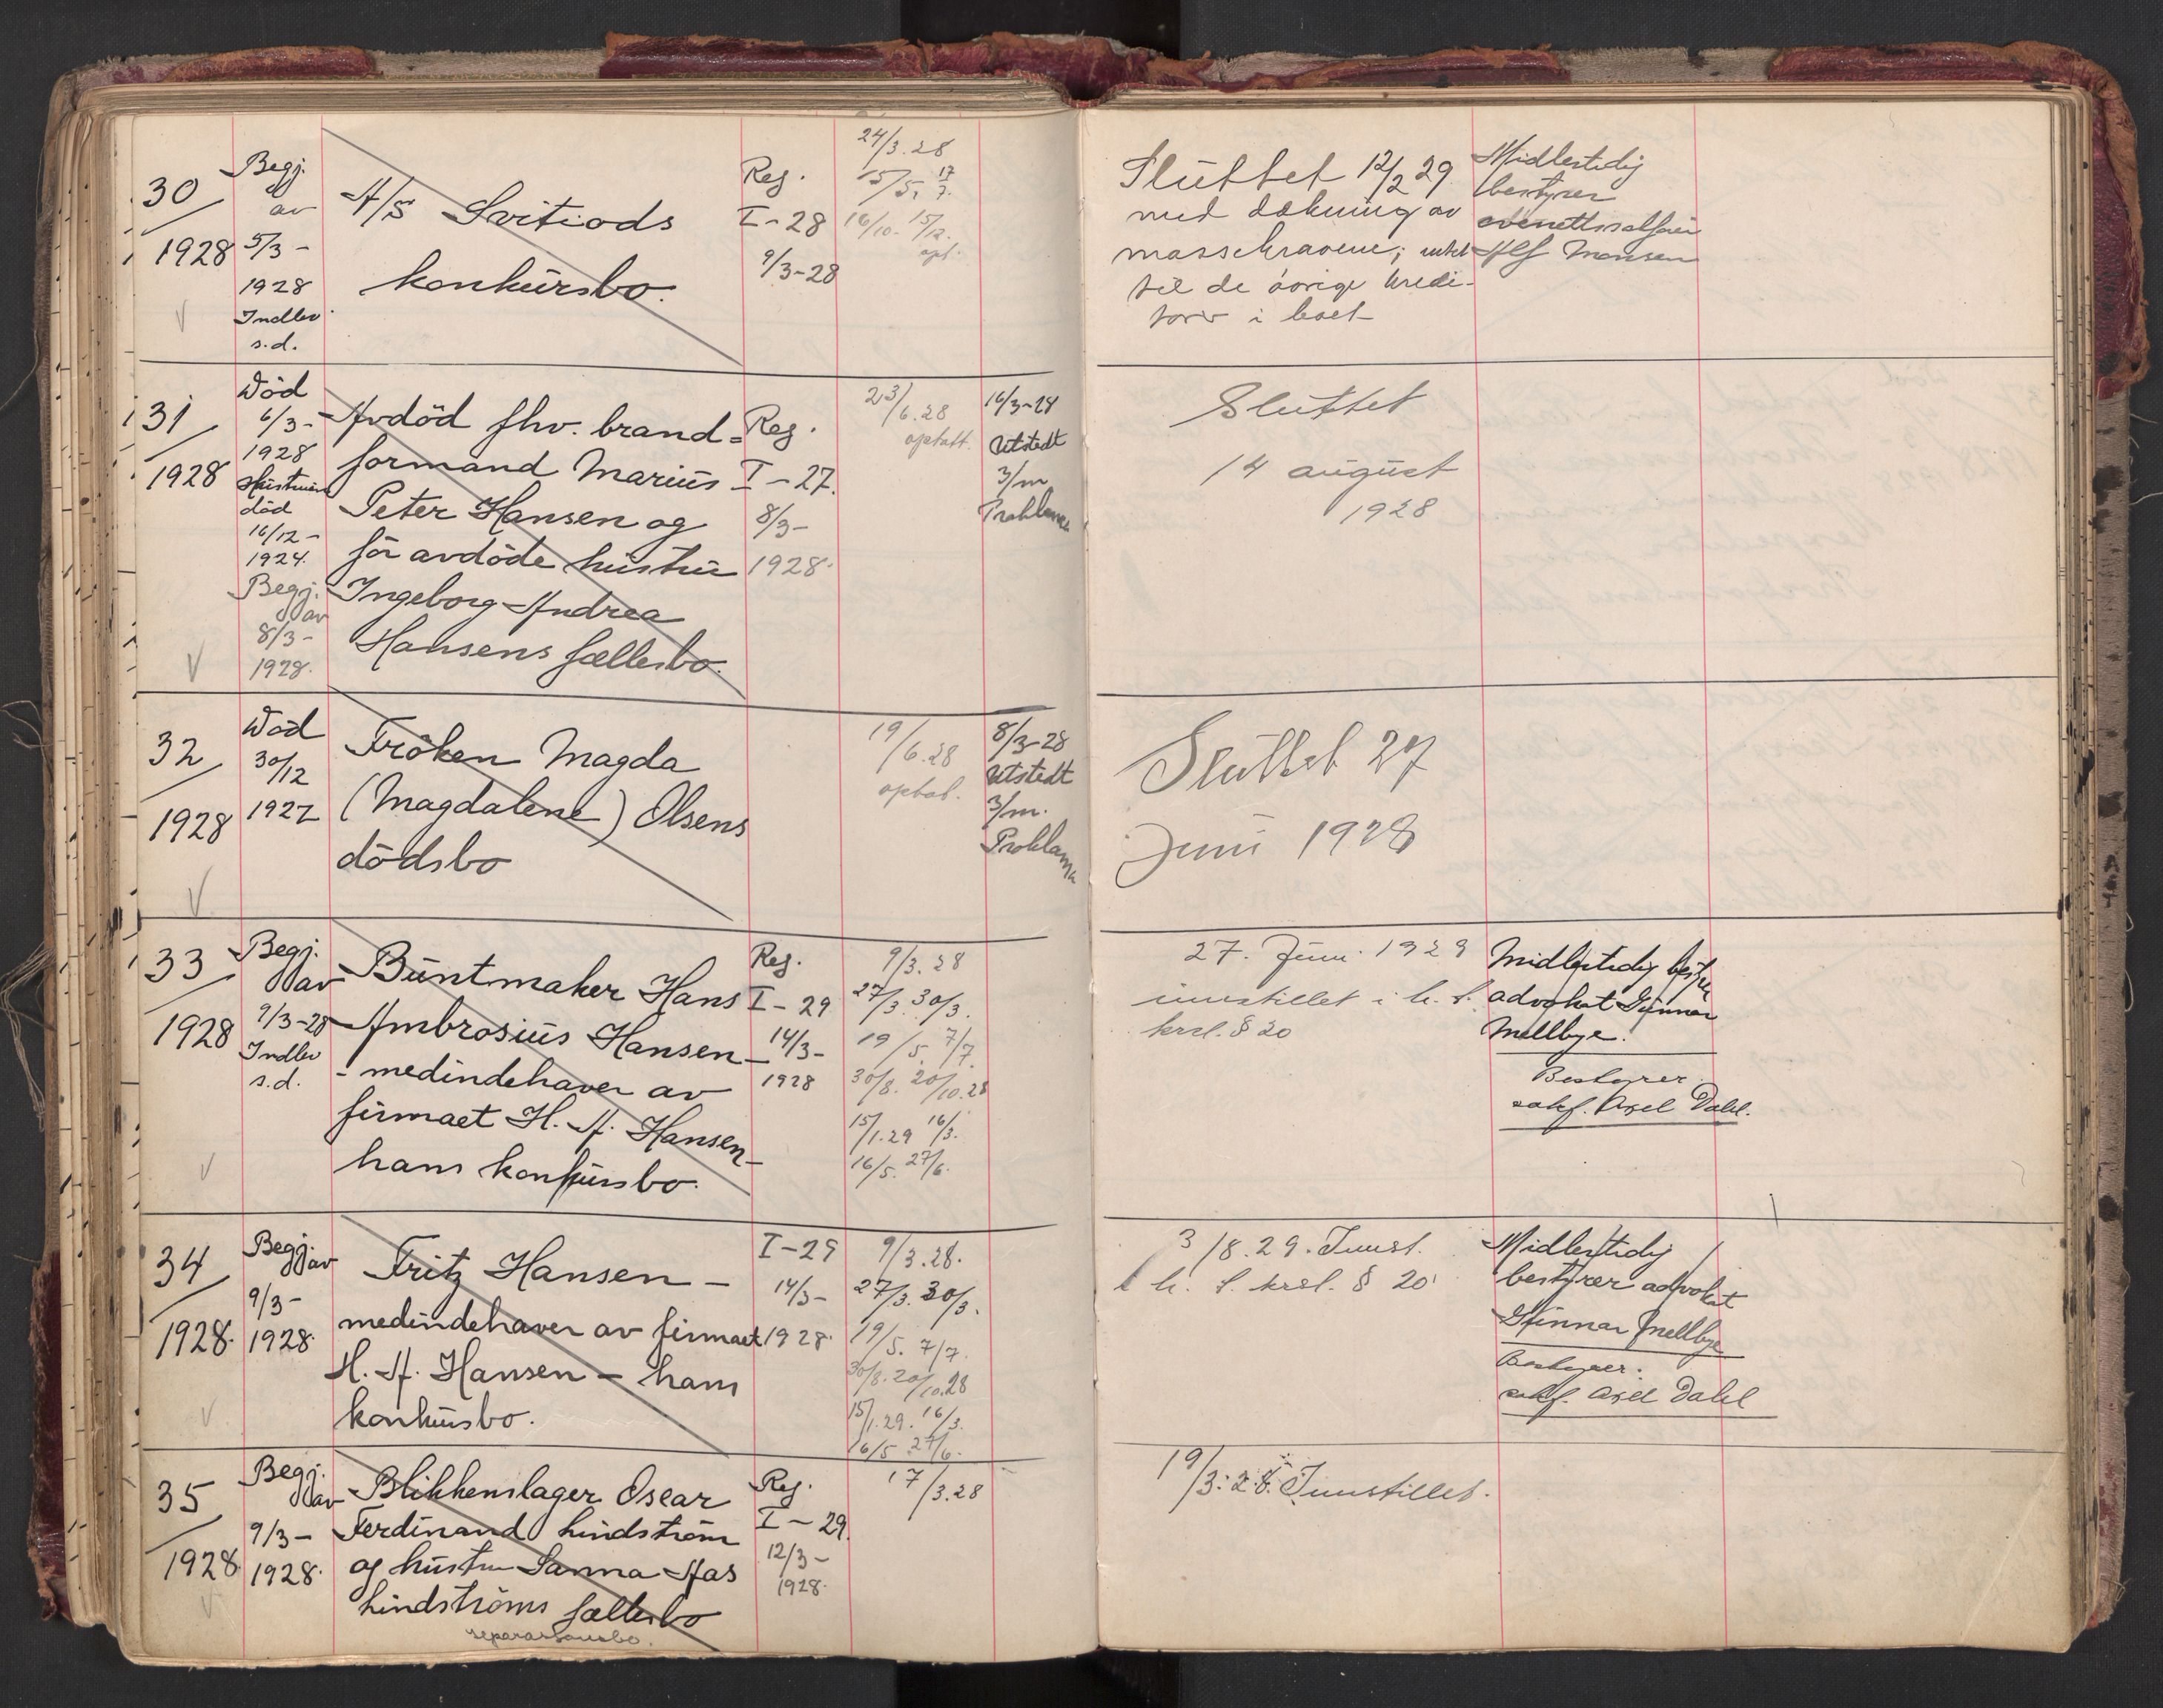 30
1928
Begj.
av
5/3-
1928
Indlev
s.d.
A/S Svitiods
konkursbo.
Reg.
I-28
9/3-28
24/3.28
5/5. 17/7.
16/10. 15/12.
opt.
Sluttet 12/2 29
med dækning av
massekravene; intet
til de övrige kredi-
torer i boet
Midlertidig
bestyrer
overrettssakfører
Alf Monsen
31
1928
Död
6/3-
1928
Hustruen
död
16/12-
1924.
Begj.
av
8/3-
1928.
Avdöd fhv. brand-
formand Marius
Peter Hansen og
för avdöde hustru
Ingeborg Andrea
Hansens fællesbo.
Reg.
I-27.
8/3-
1928.
23/6.28
optatt.
16/3-28
Utstedt
3/m
Proklama
Sluttet
14 august
1928
32
1928
Död
30/12
1927
Fröken Magda
(Magdalene) Olsens
dödsbo
19/6.28
optat.
8/3-28
Utstedt
3/m.
Proklama
Sluttet 27
Juni 1928
33
1928
Begj.
av
9/3-28
Indlev
s.d.
Buntmaker Hans
Ambrosius Hansen-
- medindehaver av
firmaet H. A. Hansen-
hans konkursbo.
Reg.
I-29
14/3-
1928
9/3.28
27/3. 30/3.
19/5. 7/7.
30/8. 20/10.28
15/1.29 16/3.
16/5. 27/6.
27. Juni 1929
innstillet i h. t.
krsl. § 20
Midlertidig bestyrer
advokat Gunnar
Mellbye.
Bestyrer
sakf. Axel Dahl.
34
1928.
Begj. av
9/3-
1928.
Fritz Hansen -
medindehaver av firmaet
H. A. Hansen - hans
konkursbo.
I-29
14/3-
1928.
9/3.28.
27/3. 30/3.
19/5. 7/7.
30/8. 20/10.28
15/1.29. 16/3.
16/5 27/6.
3/8.29. Innst.
i h. t. krsl. § 20
Midlertidig
bestyrer advokat
Gunnar Mellbye
Bestyrer:
sakf. Axel Dahl
35
1928
Begj.
av
9/3-
1928.
Blikkenslager Oscar
Ferdinand Lindström
og hustru Sanna Aas
Lindströms fællesbo
separasjonsbo.
Reg.
I-29.
12/3-
1928.
17/3.28
19/3.28. Innstillet.